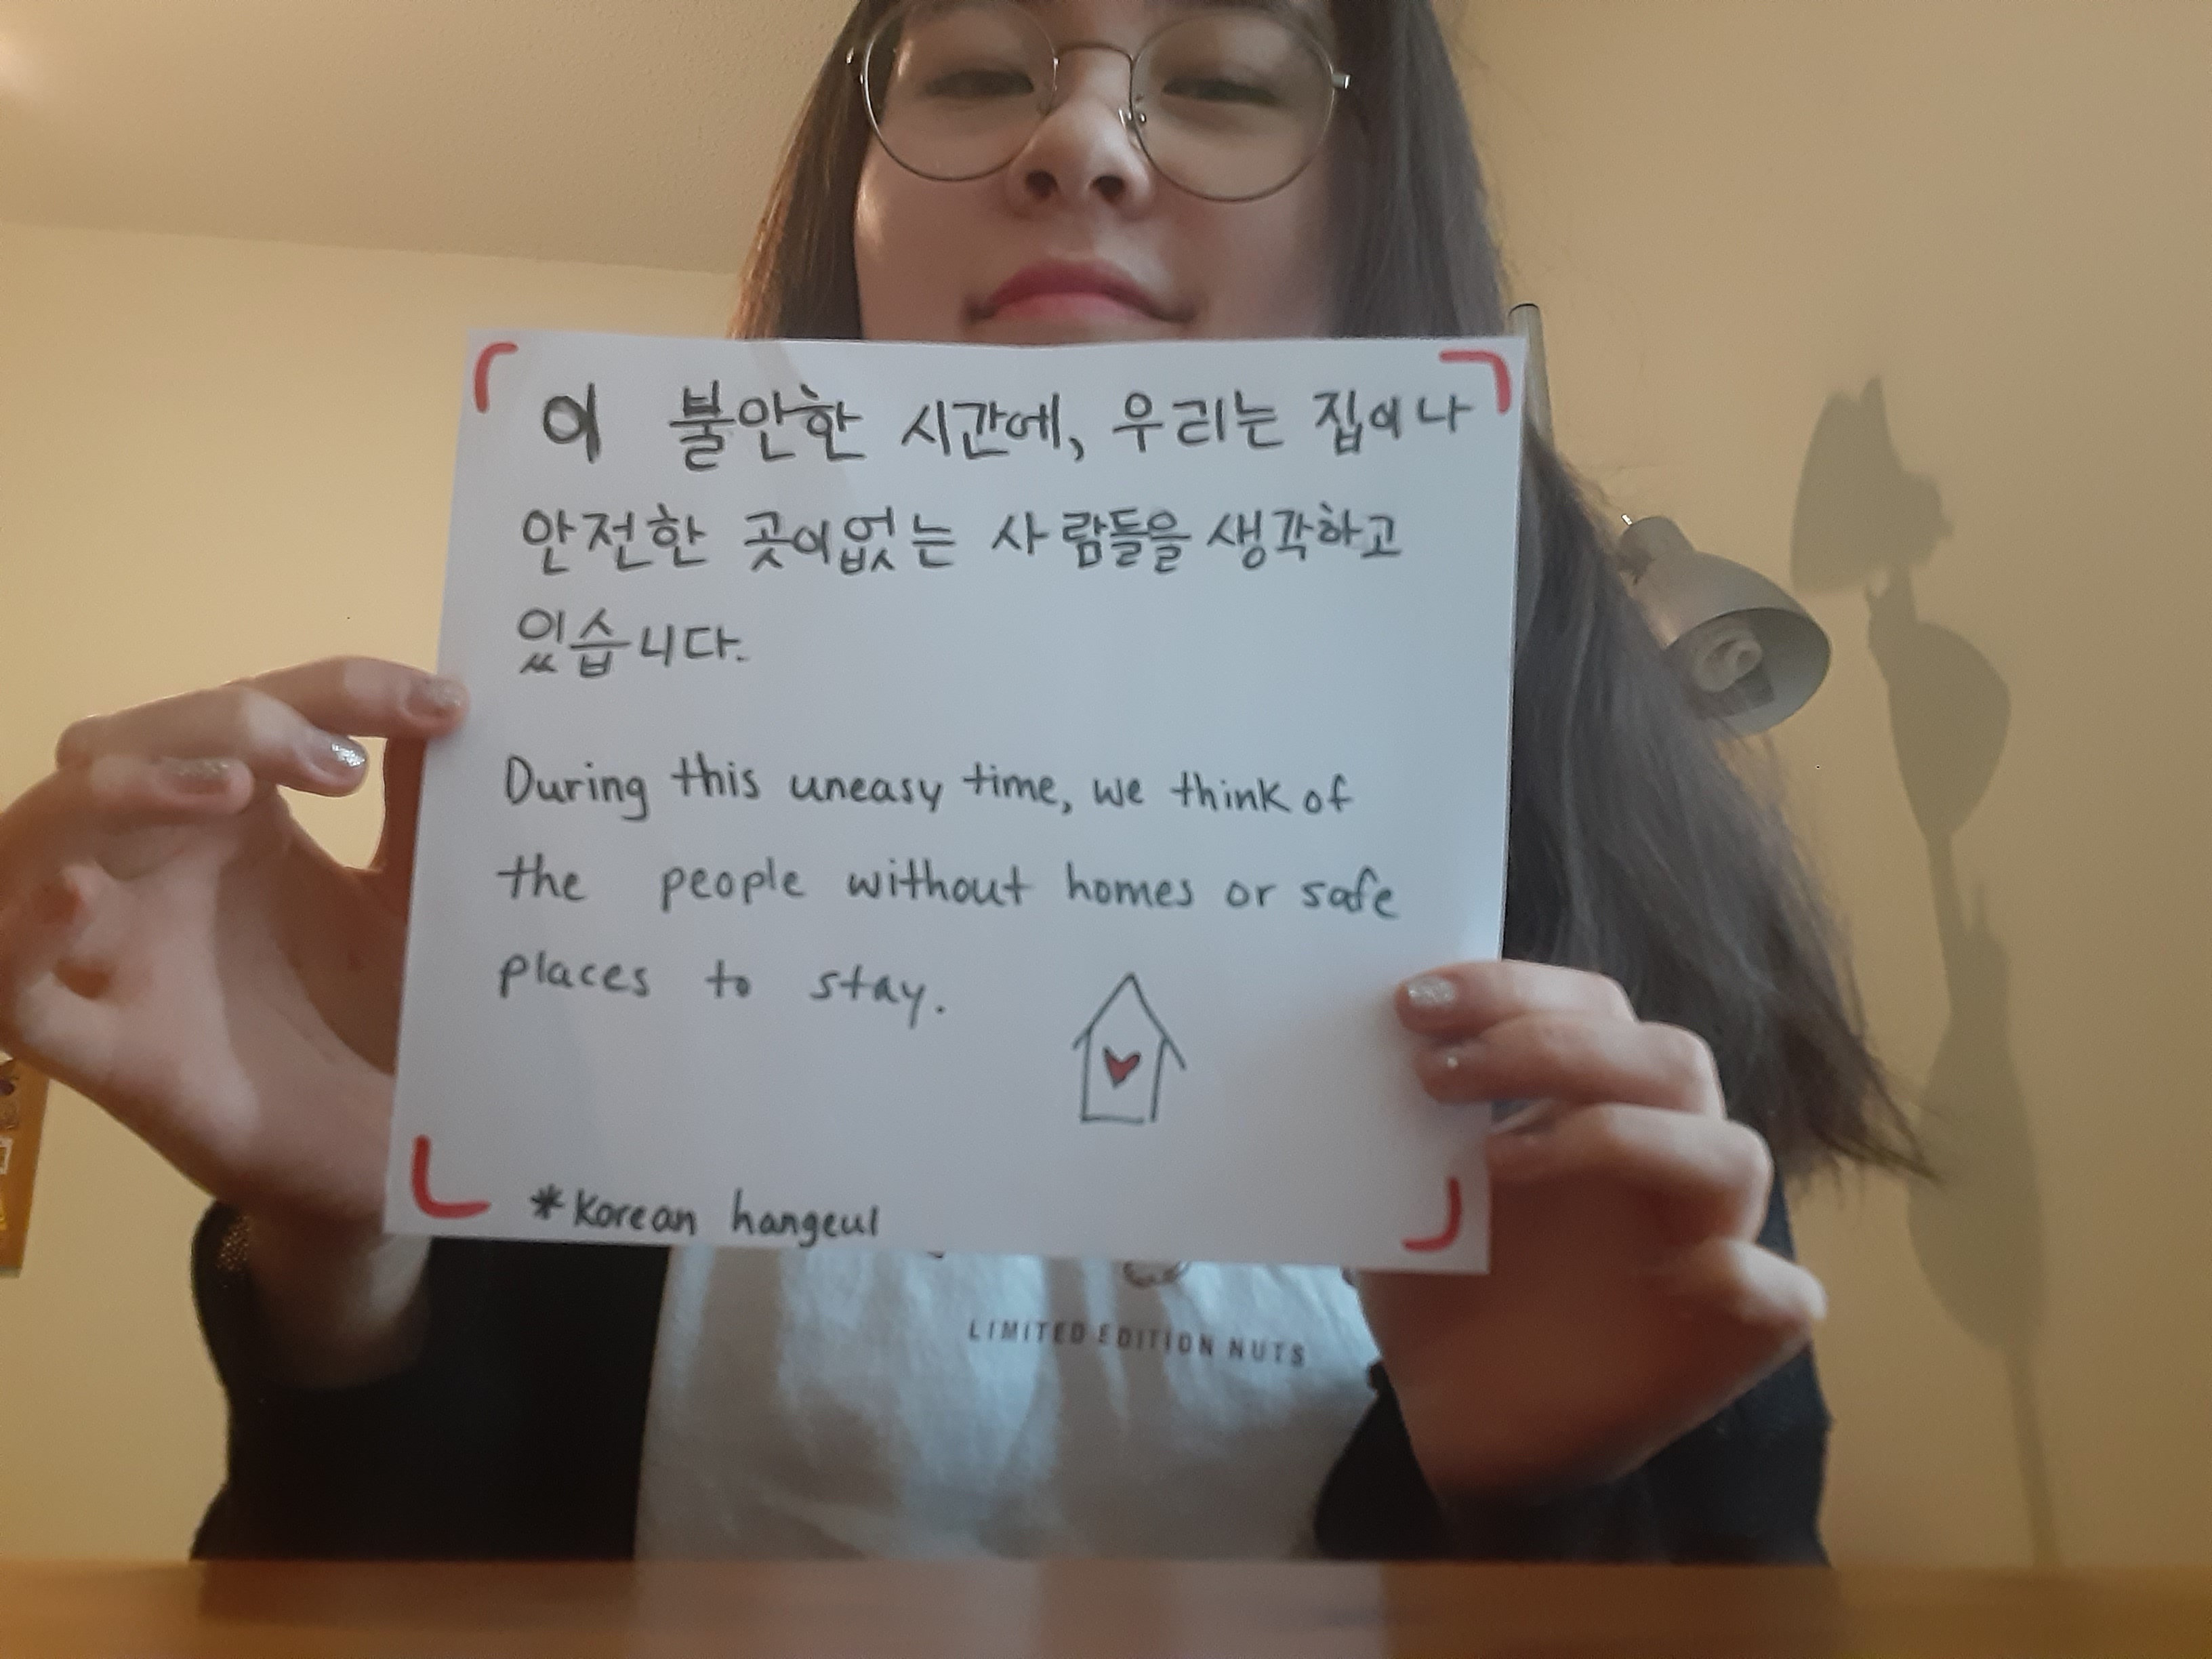 이 불안한 시간에, 우리는 집이나
안전한 곳이없는 사람들을 생각하고
있습니다.
During this uneasy time, we think of
the people without homes or safe
places to stay.
*Korean hangeul
LIMITED EDITION NUTS